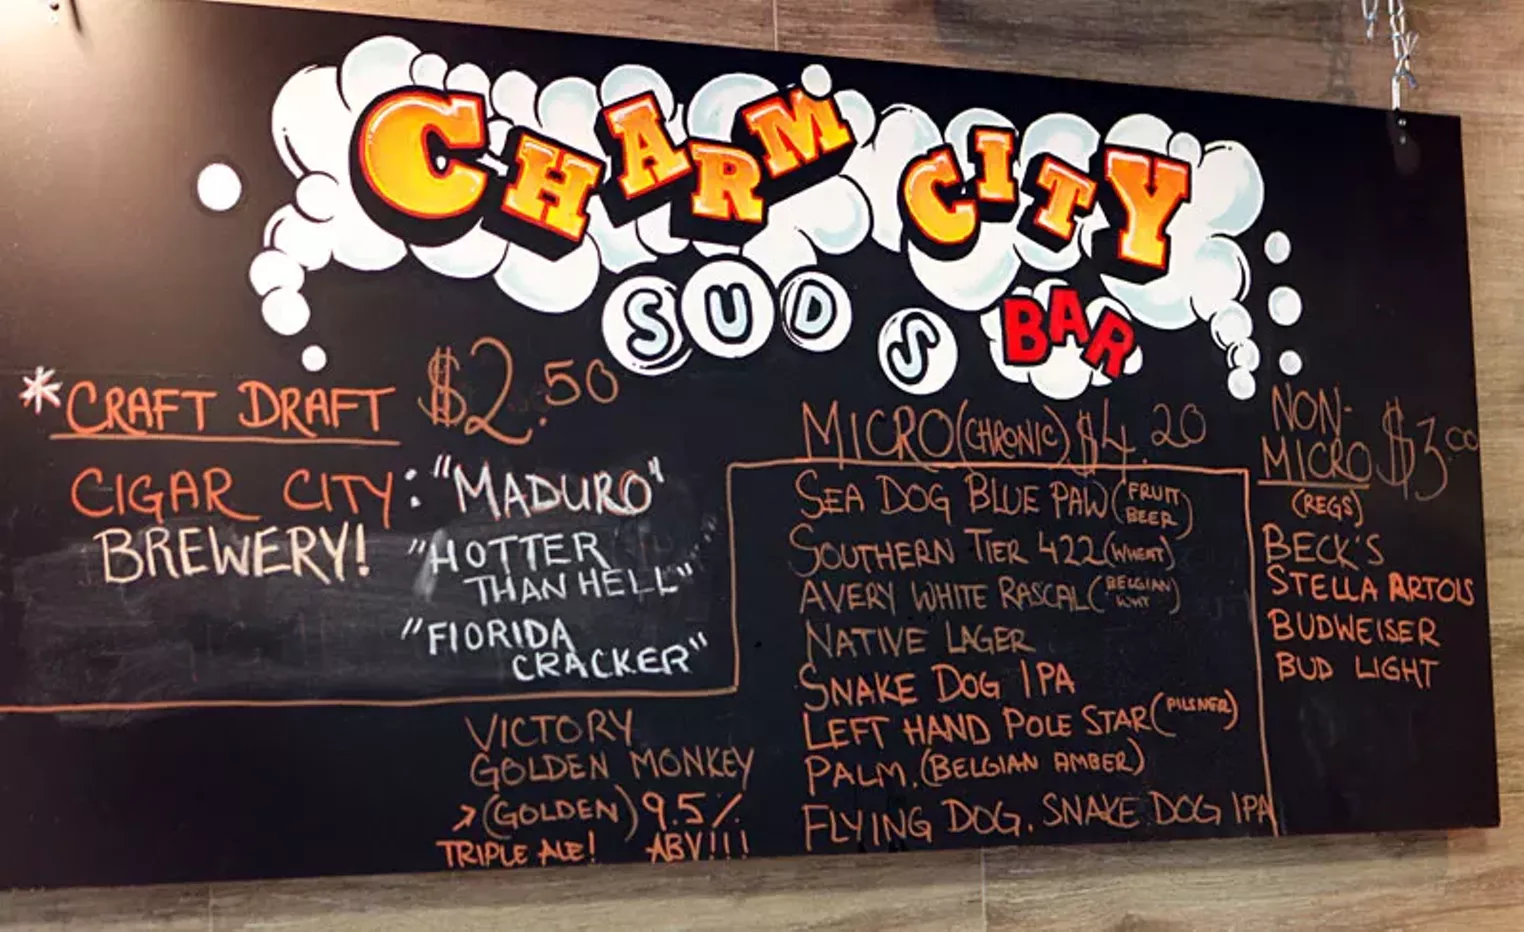 CHARM CITY
SUDS BAR
*CRAFT DRAFT $2.50
CIGAR CITY: "MADURO"
BREWERY! "HOTTER
THAN HELL"
"FLORIDA
CRACKER"
VICTORY
GOLDEN MONKEY
→(GOLDEN) 9.5%
TRIPLE ALE! ABV!!!
MICRO(CHRONIC) $4.20
SEA DOG BLUE PAW (FRUIT
BEER)
SOUTHERN TIER 422 (WHEAT)
AVERY WHITE RASCAL (BELGIAN
WHT)
NATIVE LAGER
SNAKE DOG IPA
LEFT HAND POLE STAR (PILSNER)
PALM. (BELGIAN AMBER)
FLYING DOG. SNAKE DOG IPA
NON-
MICRO $3.00
(REGS)
BECK'S
STELLA ARTOIS
BUDWEISER
BUD LIGHT